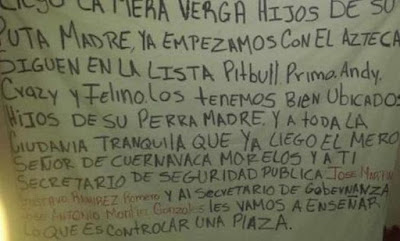 LLEGO LA MERA VERGA HIJOS DE SU
PUTA MADRE, YA EMPEZAMOS CON EL AZTECA
SIGUEN EN LA LISTA Pitbull. Primo. Andy.
Crazy y Felino. los tenemos Bien Ubicados
HIJOS DE SU PERRA MADRE. Y A TODA LA
CiUDANIA TRANQUILA QUE YA LLEGO EL MERO
SEÑOR DE CUERNAVACA MORELOS Y A TI
SECRETARIO DE SEGURIDAD PUBLICA JOSE
RAMIREZ Romero y Al SECRETARIO DE GOBERNANZA
JOSE ANTONIO LES VAMOS A ENSEÑAR
LO QUE ES CONTROLAR UNA PLAZA.